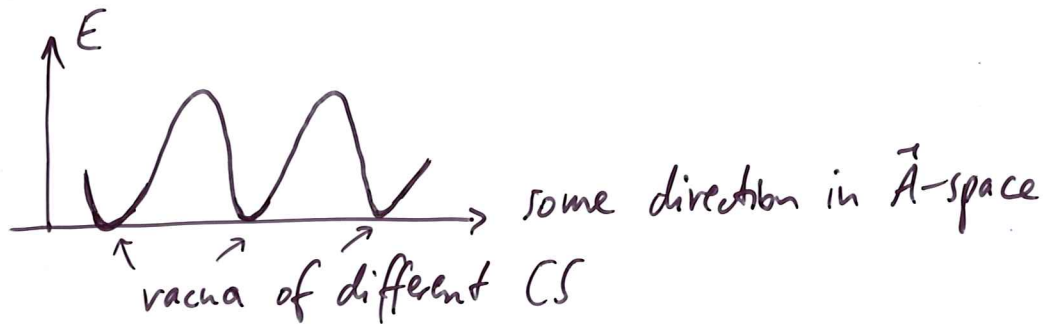 E
some direction in A⃗-space
vacua of different CS